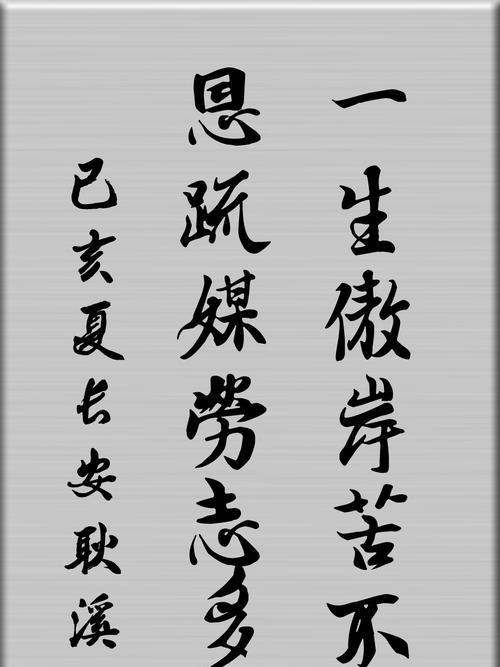 一生傲岸苦不
恩疏媒勞志多
己亥夏长安耿溪